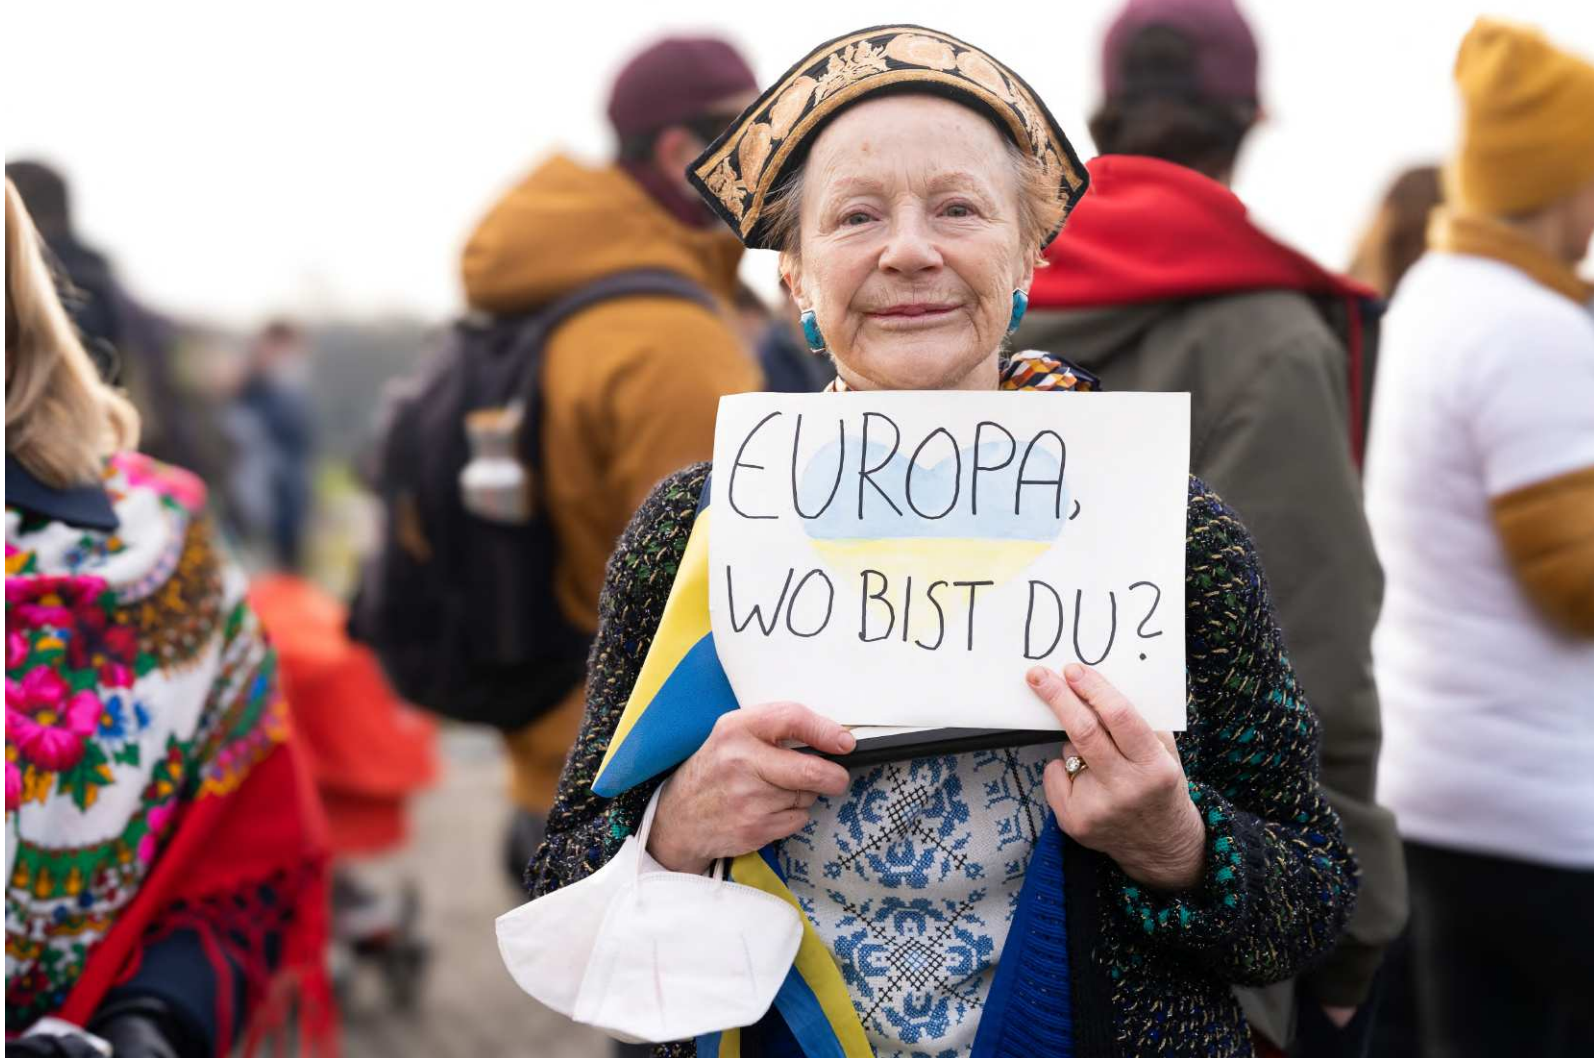 EUROPA,
WO BIST DU?